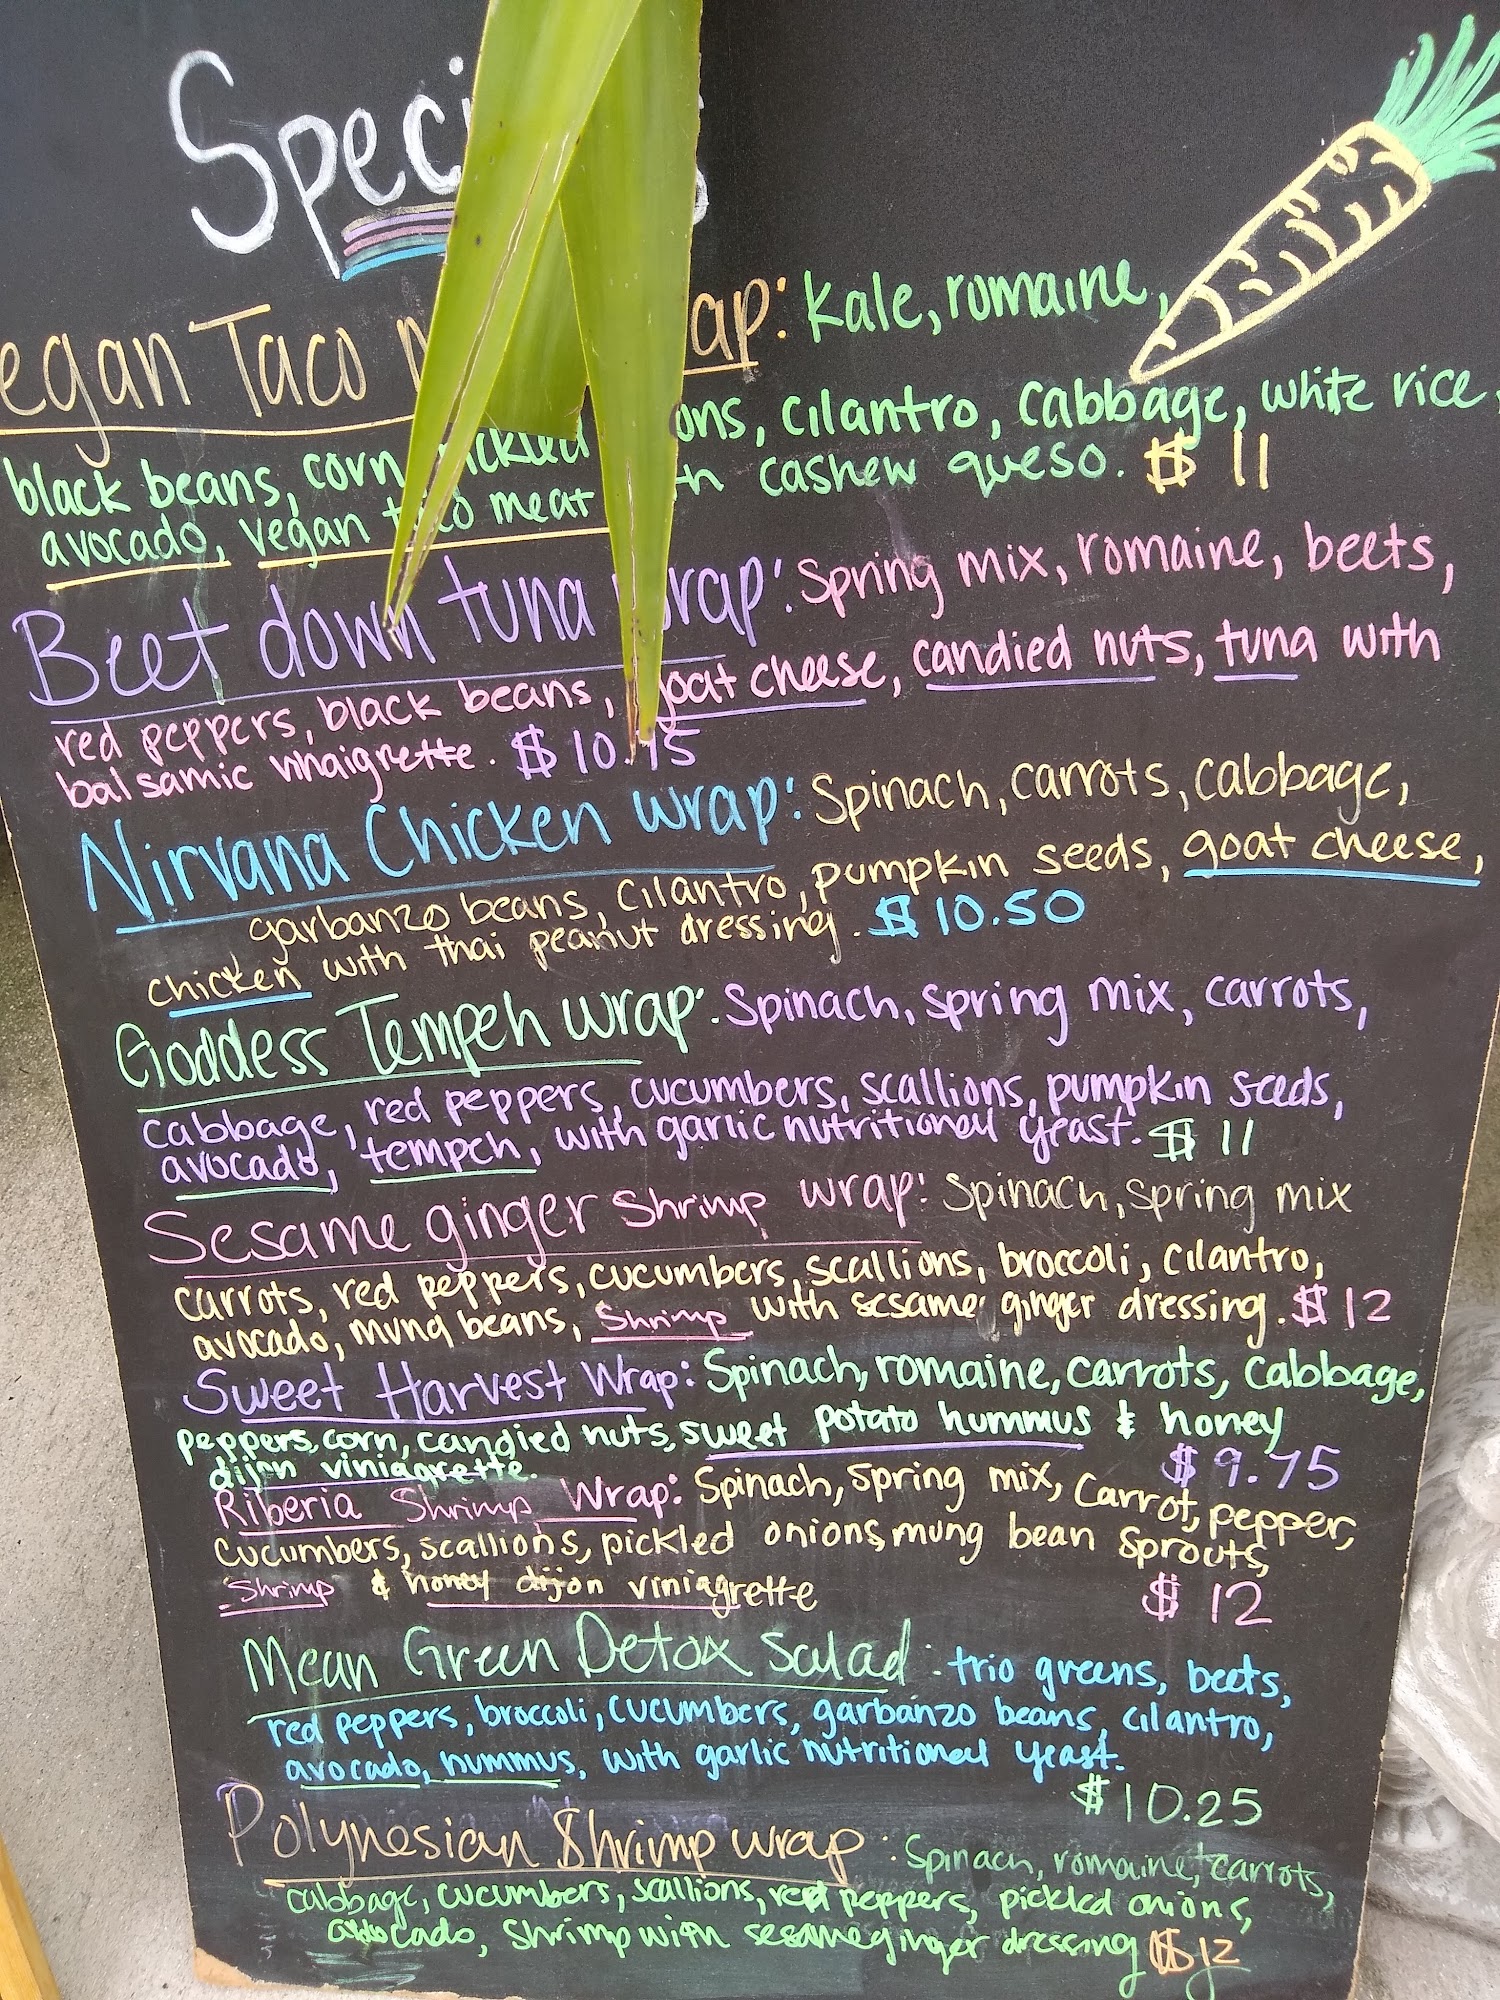 Speci s
egan Taco ap: Kale, romaine,
black beans, corn, ickled ons, cilantro, cabbage, white rice,
avocado, vegan taco meat th cashew queso. $11
Beet down tuna wrap: Spring mix, romaine, beets,
red peppers, black beans, goat cheese, candied nuts, tuna with
balsamic vinaigrette. $10.75
Nirvana Chicken wrap: Spinach, carrots, cabbage,
garbanzo beans, cilantro, pumpkin seeds, goat cheese,
chicken with thai peanut dressing. $10.50
Goddess Tempeh wrap: Spinach, spring mix, carrots,
cabbage, red peppers, cucumbers, scallions, pumpkin seeds,
avocado, tempeh, with garlic nutritional yeast. $11
Sesame ginger shrimp wrap: Spinach, spring mix
carrots, red peppers, cucumbers, scallions, broccoli, cilantro,
avocado, mung beans, shrimp with sesame ginger dressing. $12
Sweet Harvest Wrap: Spinach, romaine, carrots, cabbage,
peppers, corn, candied nuts, sweet potato hummus & honey
dijon viniagrette. $9.75
Riberia Shrimp Wrap: Spinach, spring mix, carrot, pepper,
cucumbers, scallions, pickled onions, mung bean sprouts,
shrimp & honey dijon viniagrette $12
Mean Green Detox Salad: trio greens, beets,
red peppers, broccoli, cucumbers, garbanzo beans, cilantro,
avocado, hummus, with garlic nutritional yeast.
$10.25
Polynesian Shrimp wrap: Spinach, romaine, carrots,
cabbage, cucumbers, scallions, red peppers, pickled onions,
avocado, shrimp with sesame ginger dressing $12